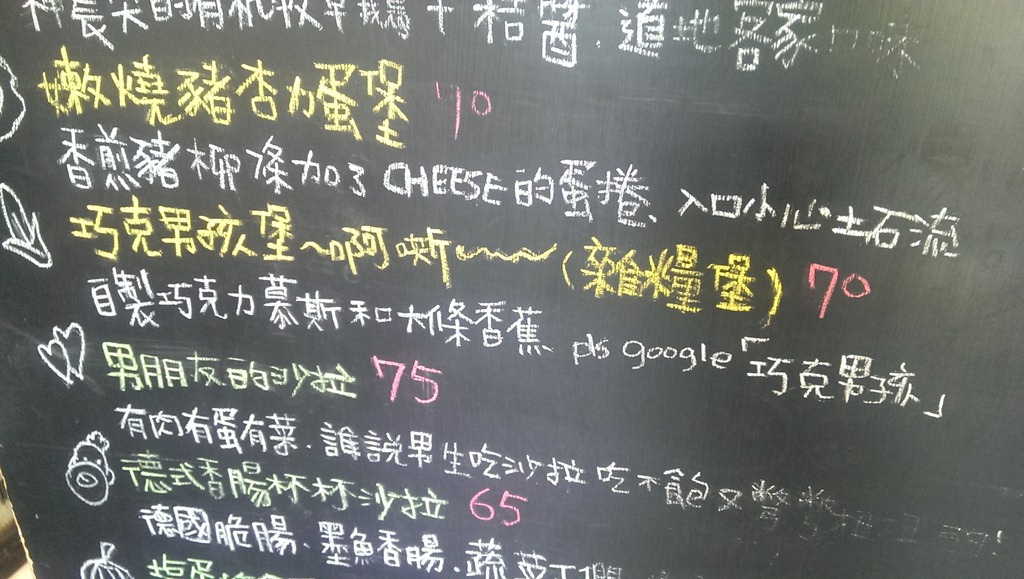 的有機牧草鵝 桔醬.道地客家口味
嫩燒豬杏力蛋堡 70
香煎豬柳條加了CHEESE的蛋捲、入口小心土石流
巧克男孩堡~啊嘶~~~~(雜糧堡) 70
自製巧克力慕斯和大條香蕉 pls google「巧克男孩」
男朋友的沙拉 75
有肉有蛋有菜.誰說男生吃沙拉吃不飽又
德式香腸杯杯沙拉 65
德國脆腸、墨魚香腸.蔬菜